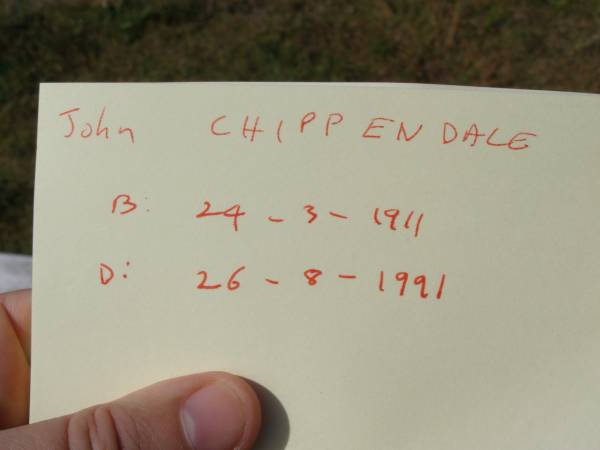 John CHIPPENDALE
B: 24-3-1911
D: 26-8-1991